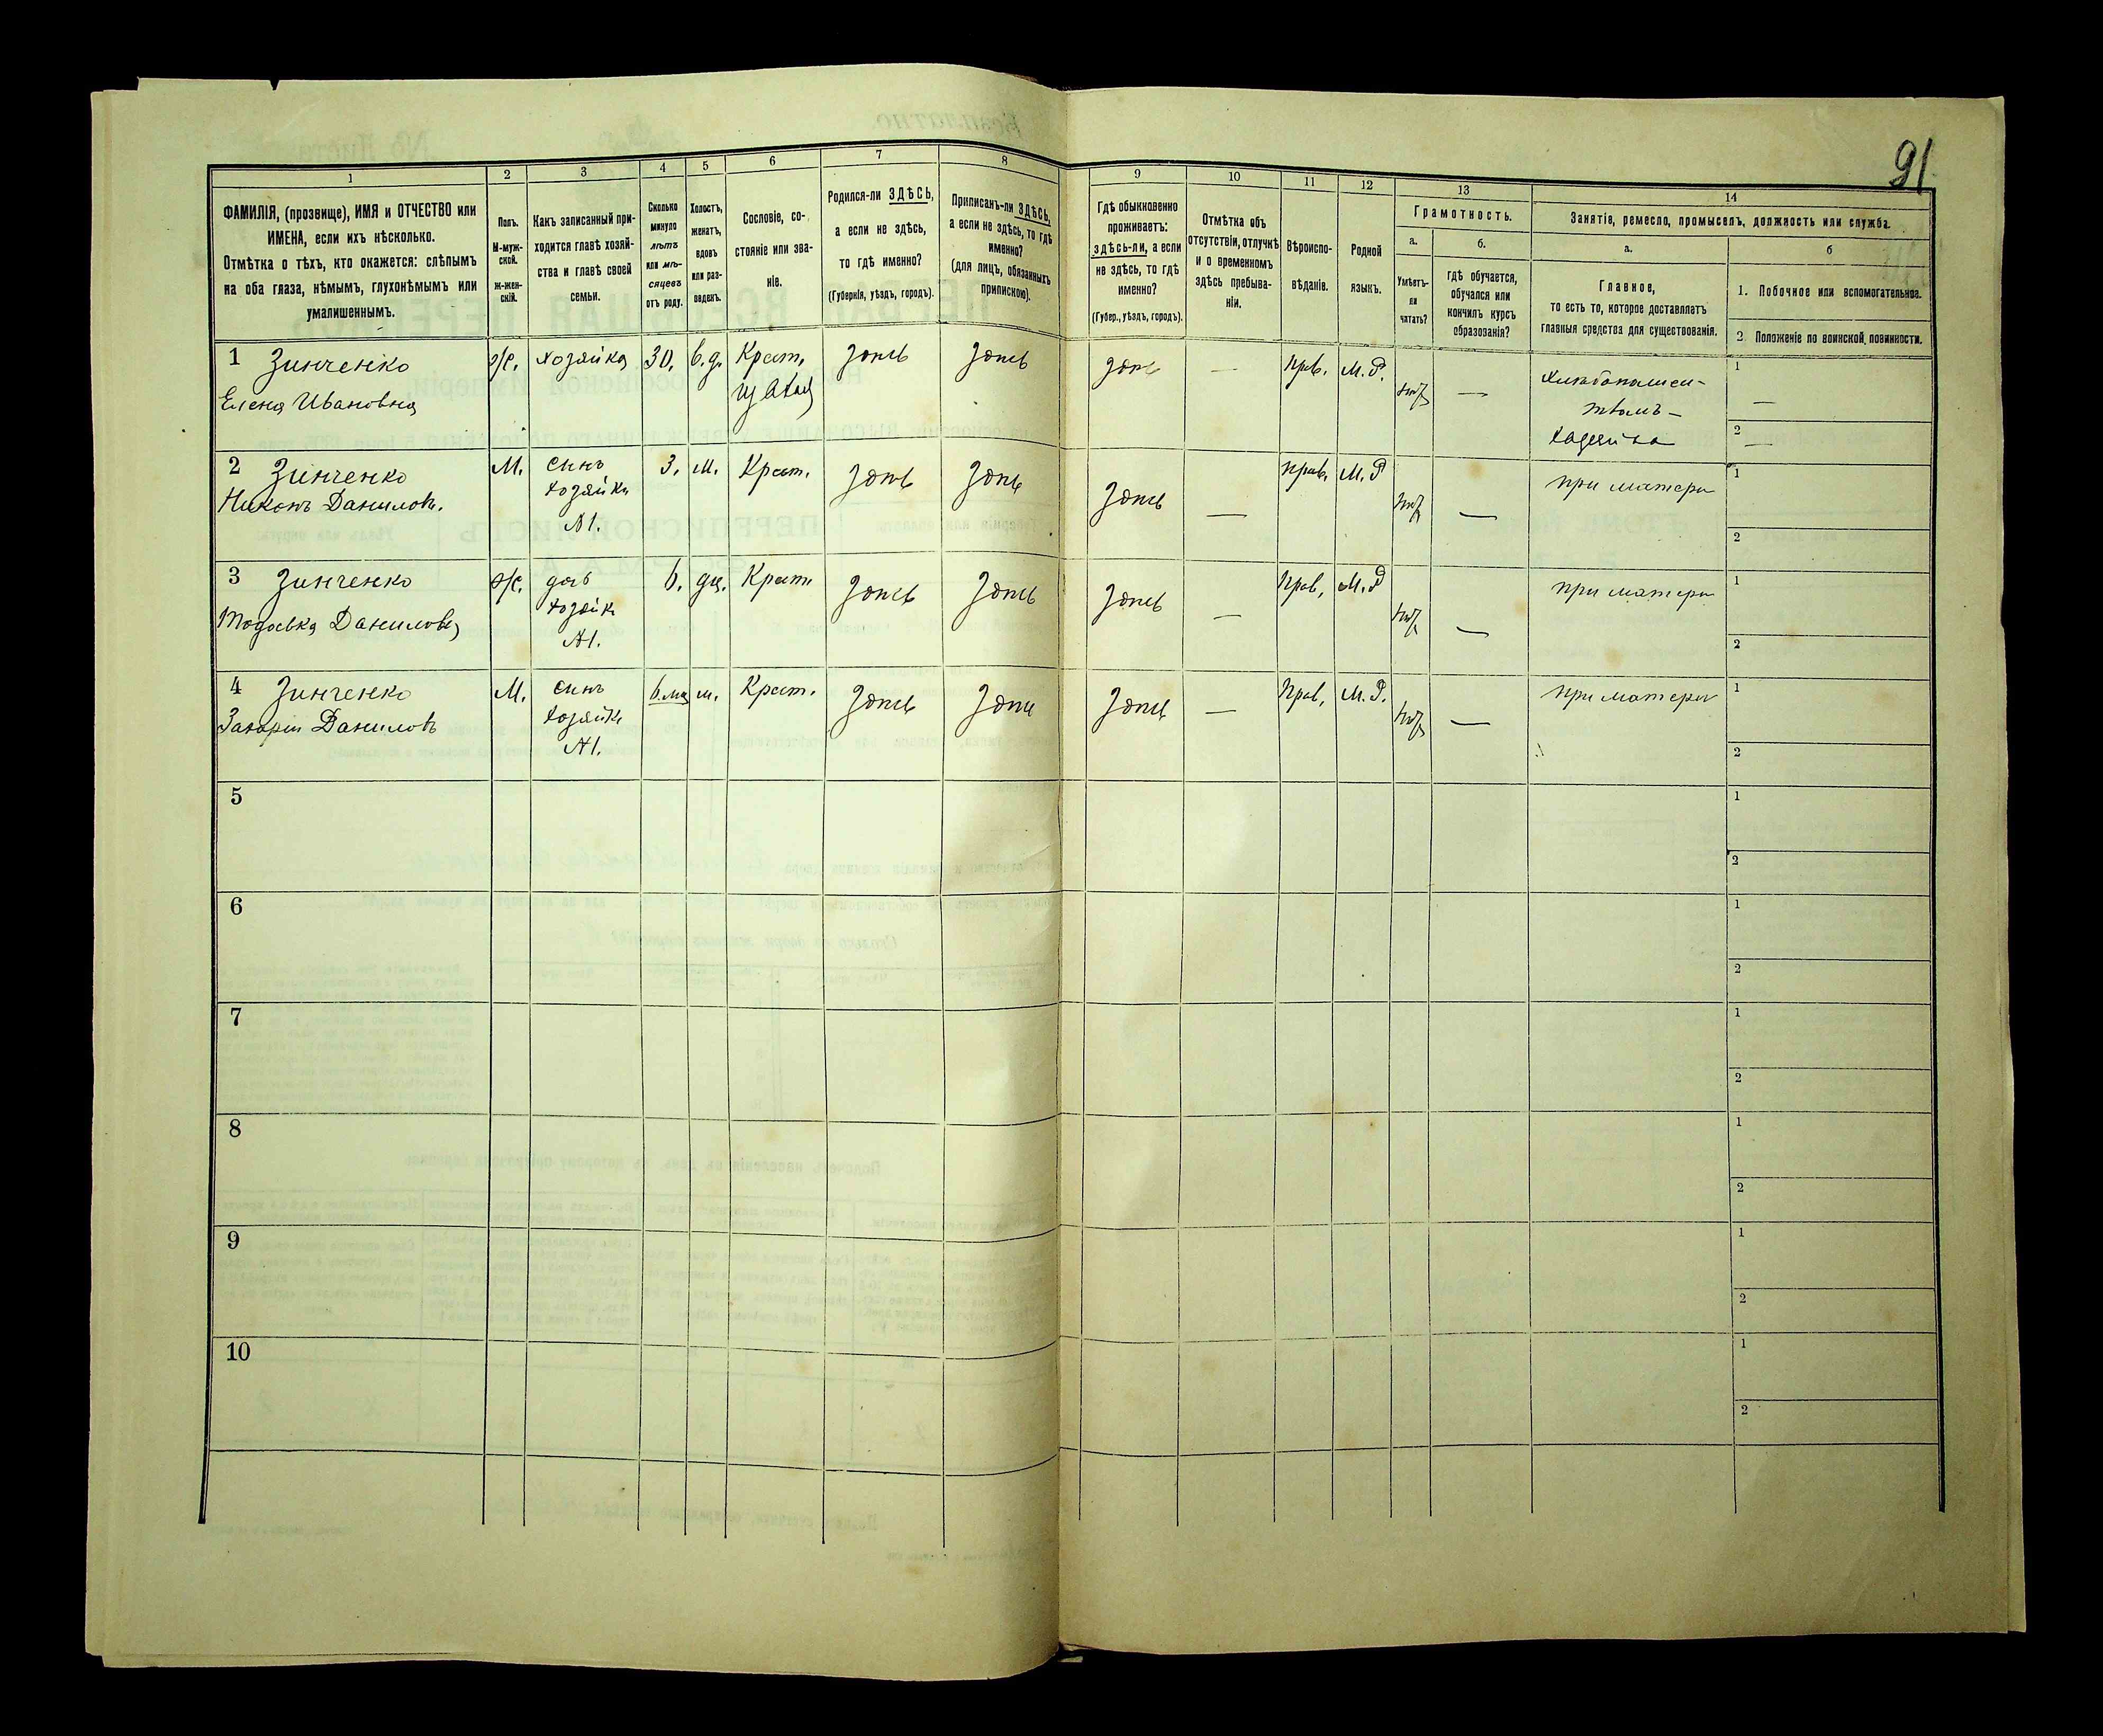 91
1
2
3
4
5
6
7
8
9
10
11
12
13
14
ФАМИЛІЯ, (прозвище), ИМЯ и ОТЧЕСТВО или
ИМЕНА, если ихъ нѣсколько.
Отмѣтка о тѣхъ, кто окажется: слѣпымъ
на оба глаза, нѣмымъ, глухонѣмымъ или
умалишеннымъ.
Полъ.
М-муж-
ской.
Ж-жен-
скій.
Какъ записанный при-
ходится главѣ хозяй-
ства и главѣ своей
семьи.
Сколько
минуло
лѣтъ
или мѣ-
сяцевъ
отъ роду.
Холостъ,
женатъ,
вдовъ
или раз-
веденъ.
Сословіе, со-
стояніе или зва-
ніе.
Родился-ли ЗДѢСЬ,
а если не здѣсь,
то гдѣ именно?
(Губернія, уѣздъ, городъ).
Приписанъ-ли ЗДѢСЬ,
а если не здѣсь, то гдѣ
именно?
(для лицъ, обязанныхъ
припискою).
Гдѣ обыкновенно
проживаетъ:
здѣсь-ли, а если
не здѣсь, то гдѣ
именно?
(Губер., уѣздъ, городъ).
Отмѣтка объ
отсутствіи, отлучкѣ
и о временномъ
здѣсь пребыва-
ніи.
Вѣроиспо-
вѣданіе.
Родной
языкъ.
Грамотность.
а.
Умѣетъ-
ли
читать?
б.
гдѣ обучается,
обучался или
кончилъ курсъ
образованія?
Занятіе, ремесло, промыселъ, должность или служба.
а.
Главное,
то есть то, которое доставляетъ
главныя средства для существованія.
б
1. Побочное или вспомогательное.
2. Положеніе по воинской повинности.
1 Зинченко ж. хозяйка 30. в.д. Крест. здѣсь здѣсь здѣсь — прав. М.Р. нѣт — 1 —
Елена Ивановна
хозяйка 2 —
2 Зинченко М. сынъ 3. м. Крест. здѣсь здѣсь здѣсь — прав. М.Р нѣт — при матери 1
Никонъ Данилов. хозяйки
№1. 2
3 Зинченко ж. дочь 6. дѣ. Крест. здѣсь здѣсь здѣсь — прав. М.Р нѣт — при матери 1
Данилова хозяйк
№1. 2
4 Зинченко М. сынъ 6.мц м. Крест. здѣсь здѣсь здѣсь — прав. М.Р. нѣт — при матери 1
Захарій Даниловъ хозяйк
№1. 2
5 1
2
6 1
2
7 1
2
8 1
2
9 1
2
10 1
2